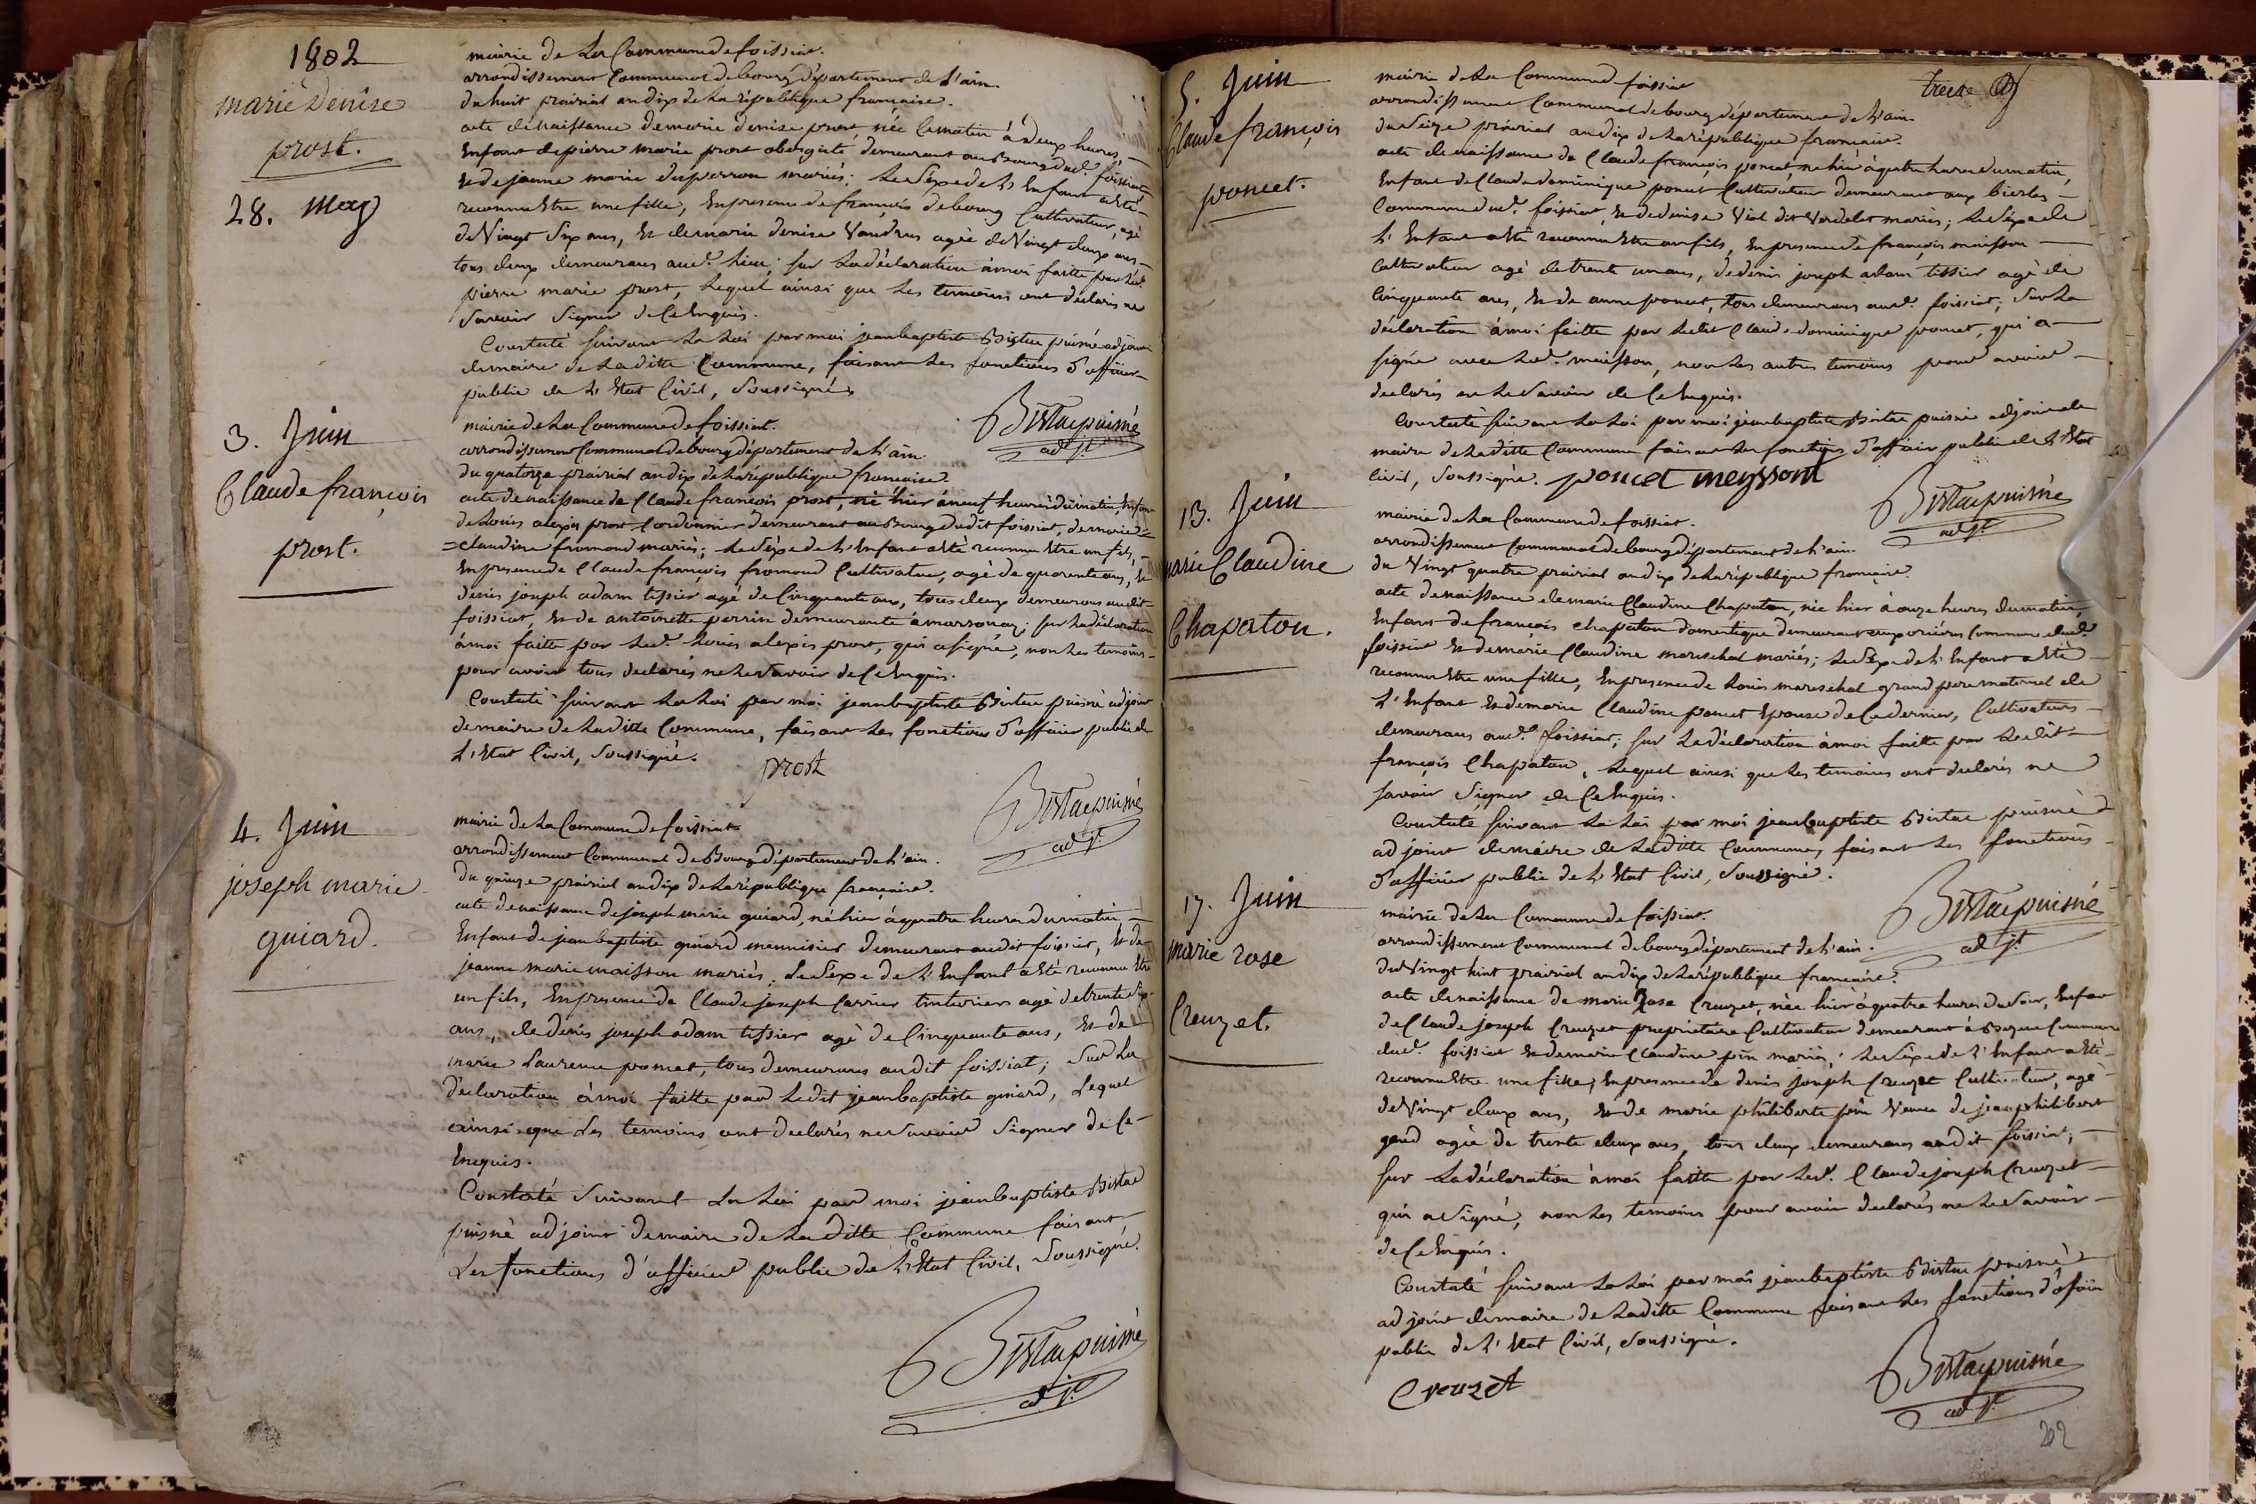 1802
marie Denise
prost.
28. May
mairie de La Commune de foissiat.
arrondissement Communal de bourg département de L'ain.
du huit prairial an dix de La république française.
acte de naissance de marie denise prost, née Cematin à deux heures,
Enfant de pierre marie prost demeurant au Bourg dud.t foissiat
Et de jeanne marie duperron mariés; Le Sexe de L'Enfant a Eté
reconnu Etre une fille, En presence de françois debourg Cultivateur, agé
de Vingt Six ans, Et de marie denise Vandrus agée de Vingt deux ans
tous deux demeurans aud.t Lieu; sur La déclaration à moi faitte par Led.t
pierre marie prost, Lequel ainsi que Les temoins ont declarés ne
Savoir Signer de Ce Enquis.
Constaté Suivant La Loi par moi jeanbaptiste Bistac puisné adjoint
de maire de Laditte Commune, faisant Les fonctions d'officier
public de L'Etat Civil, Soussigné
Bistac puisné
adj.t
3. Juin
Claude françois
prost.
mairie de La Commune de foissiat.
arrondissement Communal de bourg département de L'ain.
du quatorze prairial an dix de La république française
acte de naissance de Claude françois prost, né hier à neuf heures du matin, Enfan
de Louis alexis prost Cordonnier demeurant au Bourg dudit foissiat, de marie
=claudine fromond mariés; Le Sexe de L'Enfant a Eté reconnu Etre un fils,
En presence de Claude françois fromond Cultivateur, agé de quarente ans, de
denis joseph adam tissier agé de Cinquante ans, tous deux demeurans audit
foissiat, Et de antoinette perrin demeurante à marsonay; sur La déclaration
à moi faitte par Led.t Louis alexis prost, qui a signé, non Les temoins
pour avoir tous declarés ne Le Savoir de Ce Enquis.
Constaté Suivant La Loi par moi jeanbaptiste Bistac puisné adjoint
de maire de Laditte Commune, faisant Les fonctions d'officier public de
L'Etat Civil, Soussigné.
prost
Bistac puisné
adj.t
4. Juin
joseph marie
guiard.
mairie de La Commune de foissiat
arrondissement Communal de Bourg département de L'ain.
du quinze prairial an dix de La république française.
acte de naissance de joseph marie guiard, né hier à quatre heures du matin
Enfant de jeanbaptiste guiard menuisier demeurant audit foissiat, Et de
jeanne marie maisson mariés. Le Sexe de L'Enfant a Eté reconnu Etre
un fils, En presence de Claude joseph Carrier teinturier agé de trente Six
ans, de denis joseph adam tissier agé de Cinquante ans, Et de
marie Laurence poncet, tous demeurans audit foissiat; Sur La
déclaration à moi faitte par Ledit jeanbaptiste guiard, Lequel
ainsi que Les temoins ont declarés ne Savoir Signer de Ce
Enquis.
Constaté Suivant La Loi par moi jeanbaptiste Bistac
puisné adjoint de maire de Laditte Commune faisant
Les fonctions d'officier public de L'Etat Civil, Soussigné.
Bistac puisné
adj.t
treize
5. Juin
Claude françois
poncet.
mairie de La Commune de foissiat
arrondissement Communal de bourg département de L'ain.
du Seize prairial an dix de La république française.
acte de naissance de Claude françois poncet, né hier à quatre heures du matin,
Enfant de Claude dominique poncet Cultivateur demeurant aux bierles
Commune dud.t foissiat, Et de denise Vial dit Verdelet mariés; Le Sexe de
L'Enfant a Eté reconnu Etre un fils, En presence de françois maisson
Cultivateur agé de trente un ans, de denis joseph adam tissier agé de
Cinquante ans, Et de anne poncet, tous demeurans aud.t foissiat; Sur La
déclaration à moi faitte par Ledit Claude dominique poncet, qui a
signé avec Led.t maisson, non Les autres temoins pour avoir
declarés ne Le Savoir de Ce Enquis.
Constaté Suivant La Loi par moi jeanbaptiste Bistac puisné adjoint de
maire de Laditte Commune faisant Les fonctions d'officier public de L'Etat
Civil, Soussigné. poncet meyssont
Bistac puisné
adj.t
13. Juin
marie Claudine
Chapaton.
mairie de La Commune de foissiat.
arrondissement Communal de bourg département de L'ain.
du Vingt quatre prairial an dix de La république française.
acte de naissance de marie Claudine Chapaton, née hier à onze heures du matin,
Enfant de françois chapaton domestique demeurant Commune dud.t
foissiat Et de marie Claudine mareschal mariés; Le Sexe de L'Enfant a Eté
reconnu Etre une fille, En presence de Louis mareschal grand pere maternel de
L'Enfant Et de marie Claudine poncet Epouse de Ce dernier, Cultivateurs
demeurans aud.t foissiat; sur La déclaration à moi faitte par Ledit
françois Chapaton, Lequel ainsi que Les temoins ont declarés ne
savoir Signer de Ce Enquis.
Constaté Suivant La Loi par moi jeanbaptiste Bistac puisné
adjoint de maire de Laditte Commune, faisant Les fonctions
d'officier public de L'Etat Civil, Soussigné.
Bistac puisné
adj.t
17. Juin
marie rose
Creuzet.
mairie de La Commune de foissiat.
arrondissement Communal de bourg département de L'ain.
du Vingt huit prairial an dix de La république française.
acte de naissance de marie Rose Creuzet, née hier à quatre heures du Soir, Enfant
de Claude joseph Creuzet proprietaire Cultivateur demeurant à Commune
dud.t foissiat Et de marie Claudine pin mariés; Le Sexe de L'Enfant a Eté
reconnu Etre une fille, En presence de denis joseph Creuzet Cultivateur, agé
de Vingt deux ans, Et de marie philiberte pin Veuve de jean philibert
agée de trente deux ans, tous deux demeurans audit foissiat;
sur La déclaration à moi faitte par Led.t Claude joseph Creuzet
qui a Signé, non Les temoins pour avoir declarés ne Le Savoir
de Ce Enquis.
Constaté Suivant La Loi par moi jeanbaptiste Bistac puisné
adjoint de maire de Laditte Commune faisant Les fonctions d'officier
public de L'Etat Civil, Soussigné.
Creuzet
Bistac puisné
adj.t
202